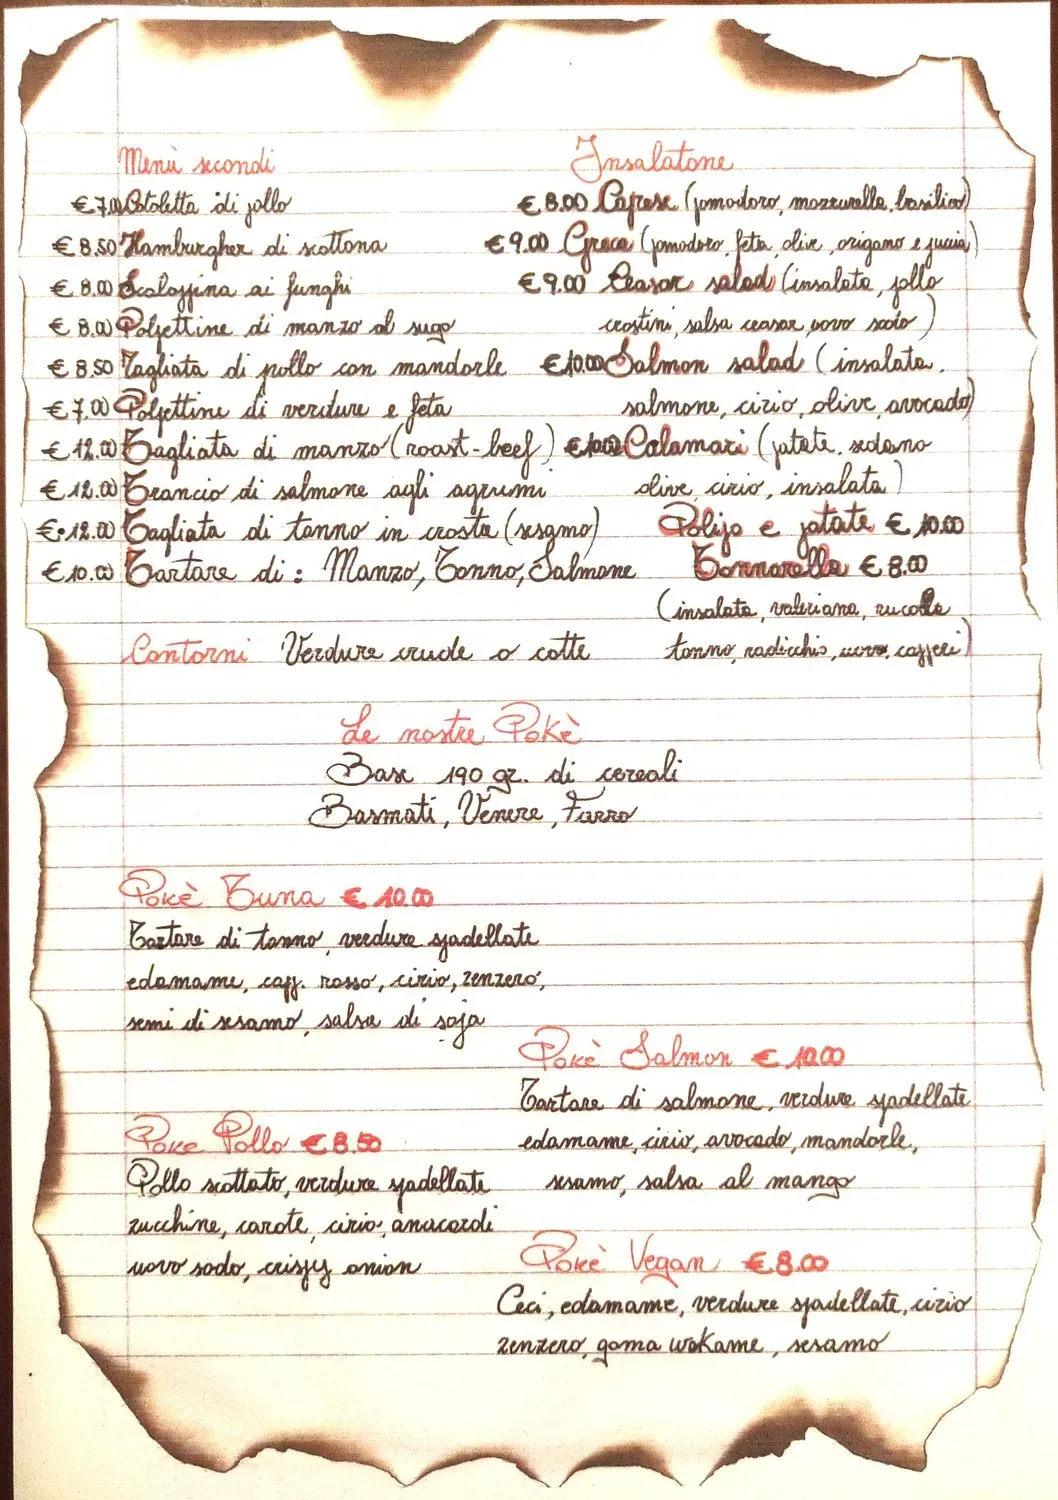 Menù secondi
€ 7.00 Cotoletta di pollo
€ 8.50 Hamburgher di scottona
€ 8.00 Scaloppina ai funghi
€ 8.00 Polpettine di manzo al sugo
€ 8.50 Tagliata di pollo con mandorle
€ 7.00 Polpettine di verdure e feta
€ 12.00 Tagliata di manzo (roast-beef)
€ 12.00 Trancio di salmone agli agrumi
€ 12.00 Tagliata di tonno in crosta (sesamo)
€ 10.00 Tartare di: Manzo, Tonno, Salmone
Contorni Verdure crude o cotte
Insalatone
€ 8.00 Caprese (pomodoro, mozzarella, basilico)
€ 9.00 Greca (pomodoro, feta, olive, origano e
€ 9.00 Ceasar salad (insalata, pollo
crostini, salsa ceasar, uovo sodo)
€ 10.00 Salmon salad (insalata,
salmone, cirio, olive, avocado)
€ 10.00 Calamari (patate, sedano
olive, cirio, insalata)
Polipo e patate € 10.00
Tonnarella € 8.00
(insalata, valeriana, rucola
tonno, radicchio, uovo, capperi)
Le nostre Pokè
Base 190 gr. di cereali
Basmati, Venere, Farro
Pokè Tuna € 10.00
Tartare di tonno, verdure spadellate
edamame, capp. rosso, cirio, zenzero,
semi di sesamo, salsa di soja
Pokè Salmon € 10.00
Tartare di salmone, verdure spadellate
edamame, cirio, avocado, mandorle,
sesamo, salsa al mango
Poke Pollo € 8.50
Pollo scottato, verdure spadellate
zucchine, carote, cirio, anacardi
uovo sodo, crispy onion
Pokè Vegan € 8.00
Ceci, edamame, verdure spadellate, cirio
zenzero, goma wakame, sesamo